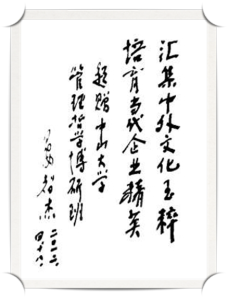 汇集中外文化玉粹
培育当代企业精英
题赠中山大学
管理哲学博研班
智杰